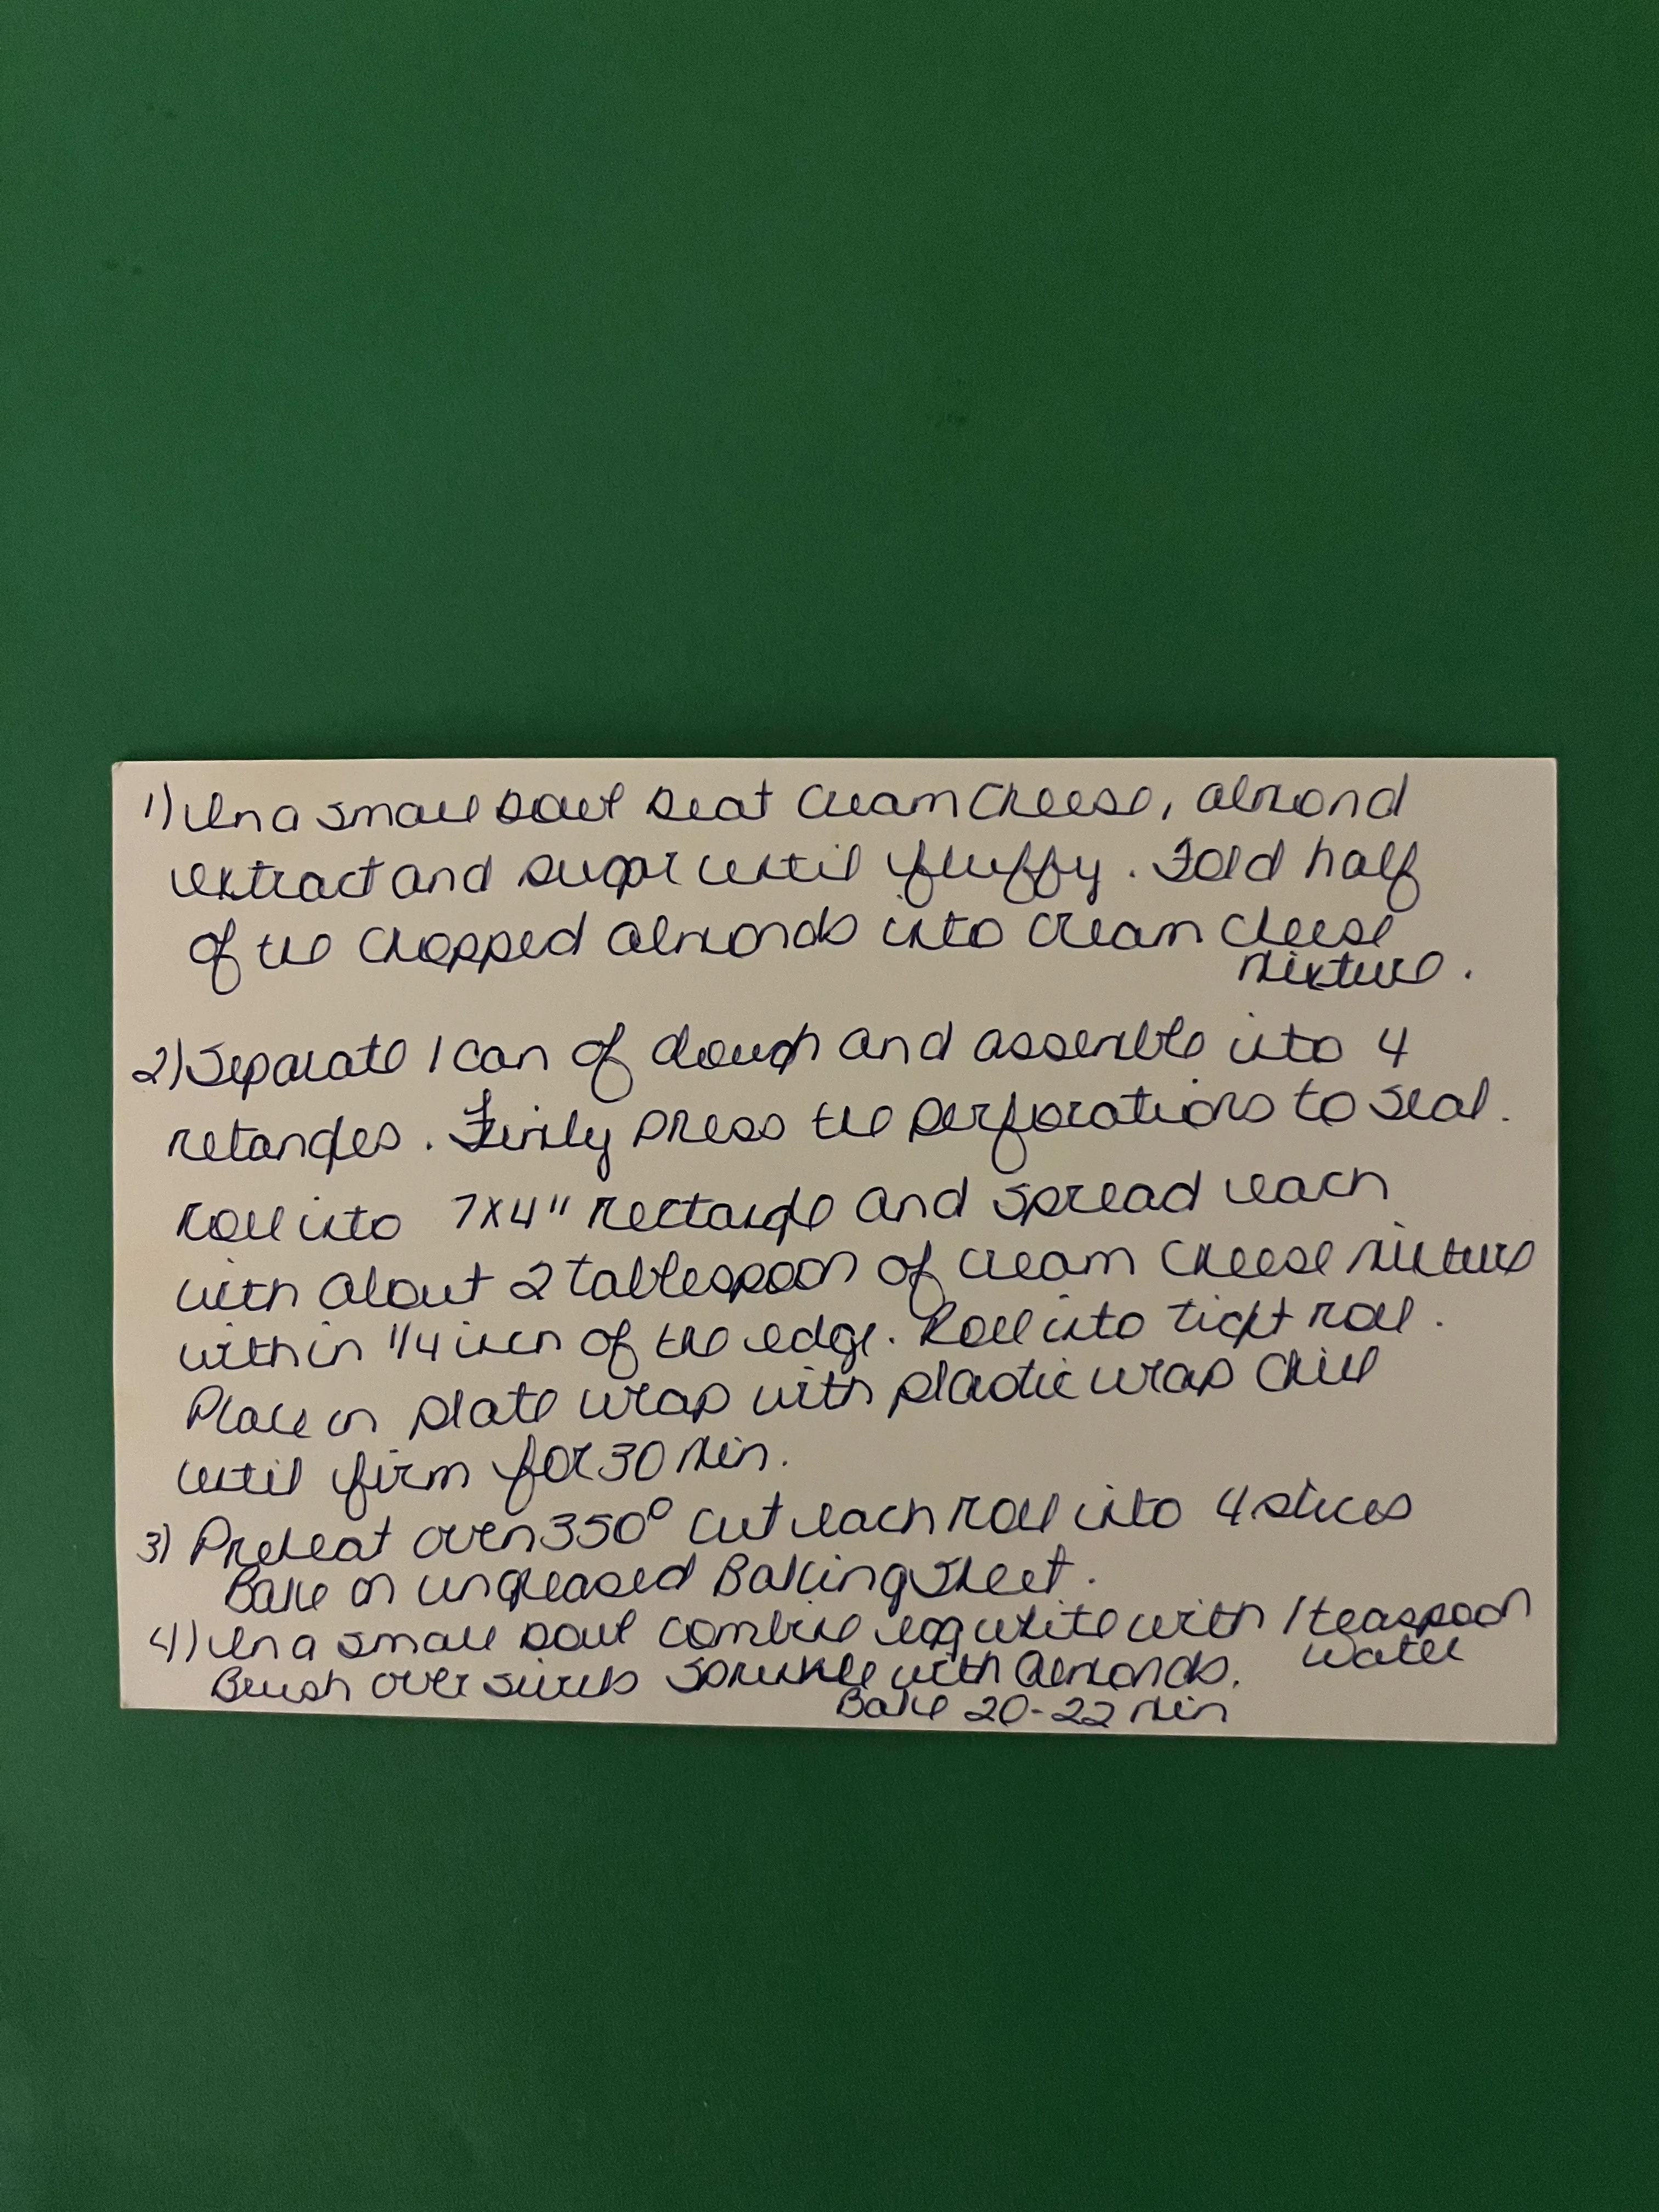 1) In a small bowl beat cream cheese, almond
extract and sugar until fluffy. Fold half
of the chopped almonds into cream cheese
mixture.
2) Separate 1 can of dough and assemble into 4
retangles. Firmly press the perforations to seal.
Roll into 7x4" rectangle and spread each
with about 2 tablespoon of cream cheese mixture
within 1/4 inch of the edge. Roll into tight roll.
Place on plate wrap with plastic wrap chill
until firm for 30 min.
3) Preheat oven 350° cut each roll into 4 slices
Bake on ungreased Baking Sheet.
4) In a small bowl combine egg white with 1 teaspoon
water
Brush over swirls sprinkle with almonds.
Bake 20-22 min